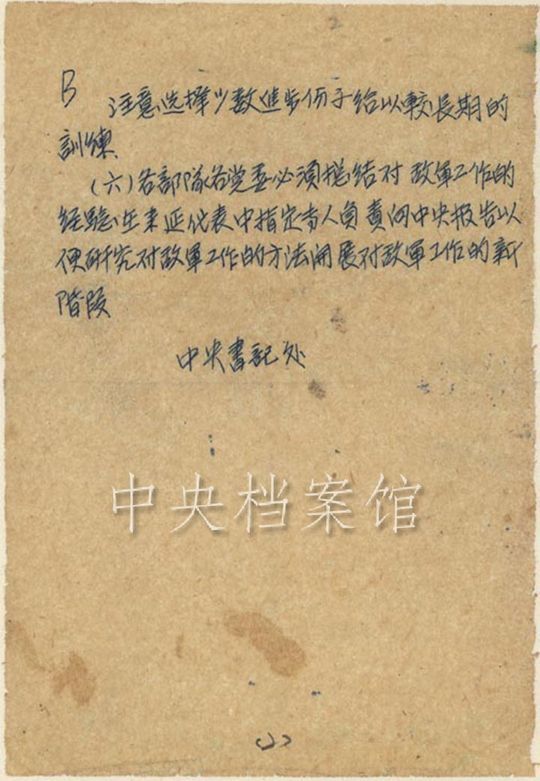 B
注意选择少数進步份子给以較長期的
訓練
(六)各部隊各党委必须总结对敌軍工作的
经验在来延代表中指定专人負責向中央报告以
便研究对敌軍工作的方法開展对敌軍工作的新
階段
中央書記处
中央档案馆